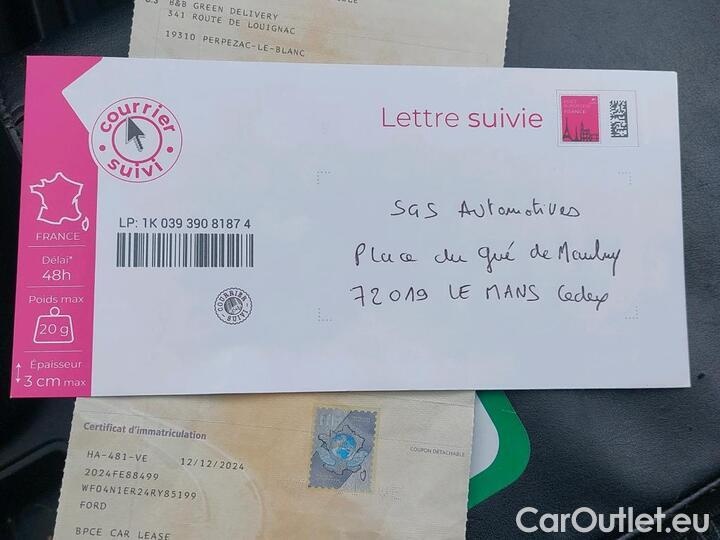 C.3 B&B GREEN DELIVERY
341 ROUTE DE LOUIGNAC
19310 PERPEZAC-LE-BLANC
courrier
suivi
Lettre suivie
FRANCE
LP: 1K 039 390 8187 4
FRANCE
Délai*
48h
Poids max
20 g
Épaisseur
3 cm max
COURRIER
SUIVI
SGS Automotives
Place du gué de Maulny
72019 LE MANS Cedex
Certificat d'immatriculation
COUPON DÉTACHABLE
HA-481-VE 12/12/2024
2024FE88499
WF04N1ER24RY85199
FORD
BPCE CAR LEASE
CarOutlet.eu